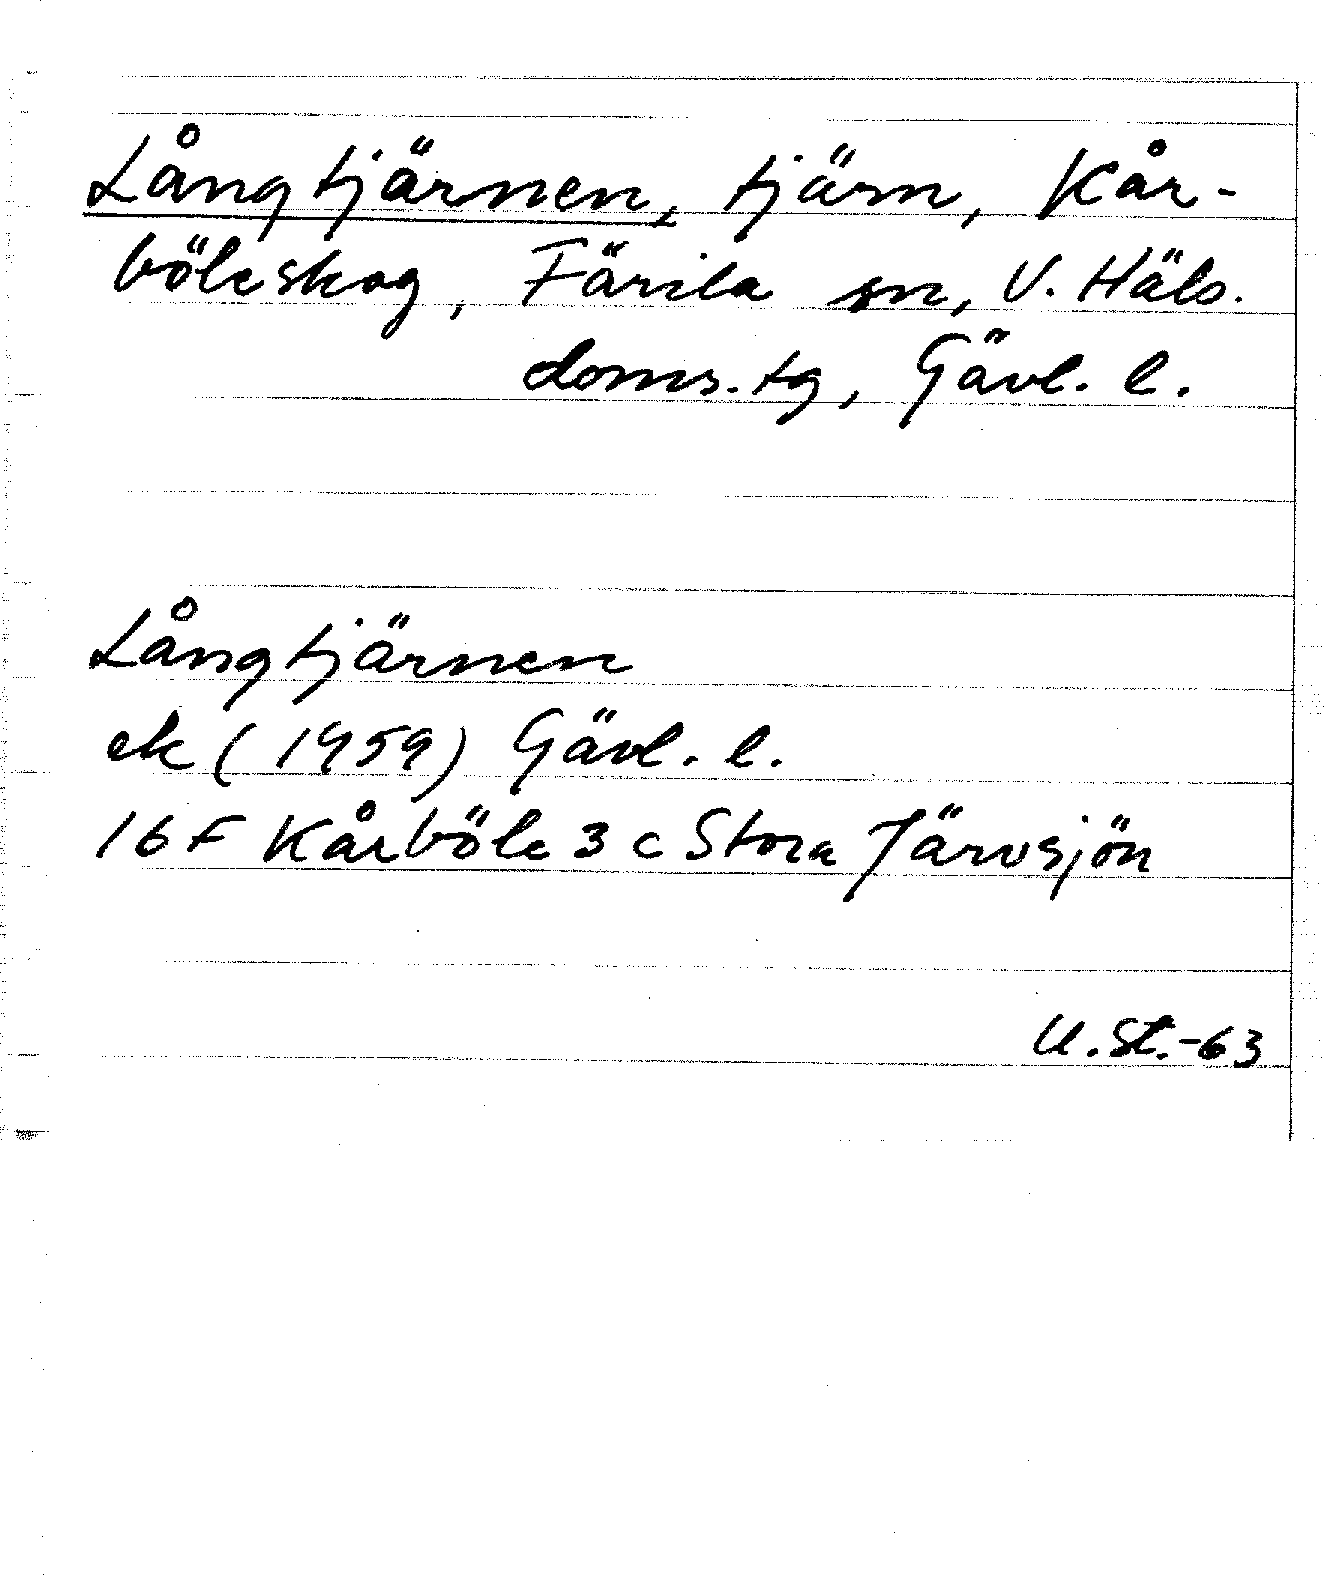 Långtjärnen, tjärn, Kår-
böleskog, Färila sn, V. Häls.
doms.tg, Gävl. l.
Långtjärnen
ek (1959) Gävl. l.
16 F Kårböle 3 c Stora Järvsjön
U. St. -63